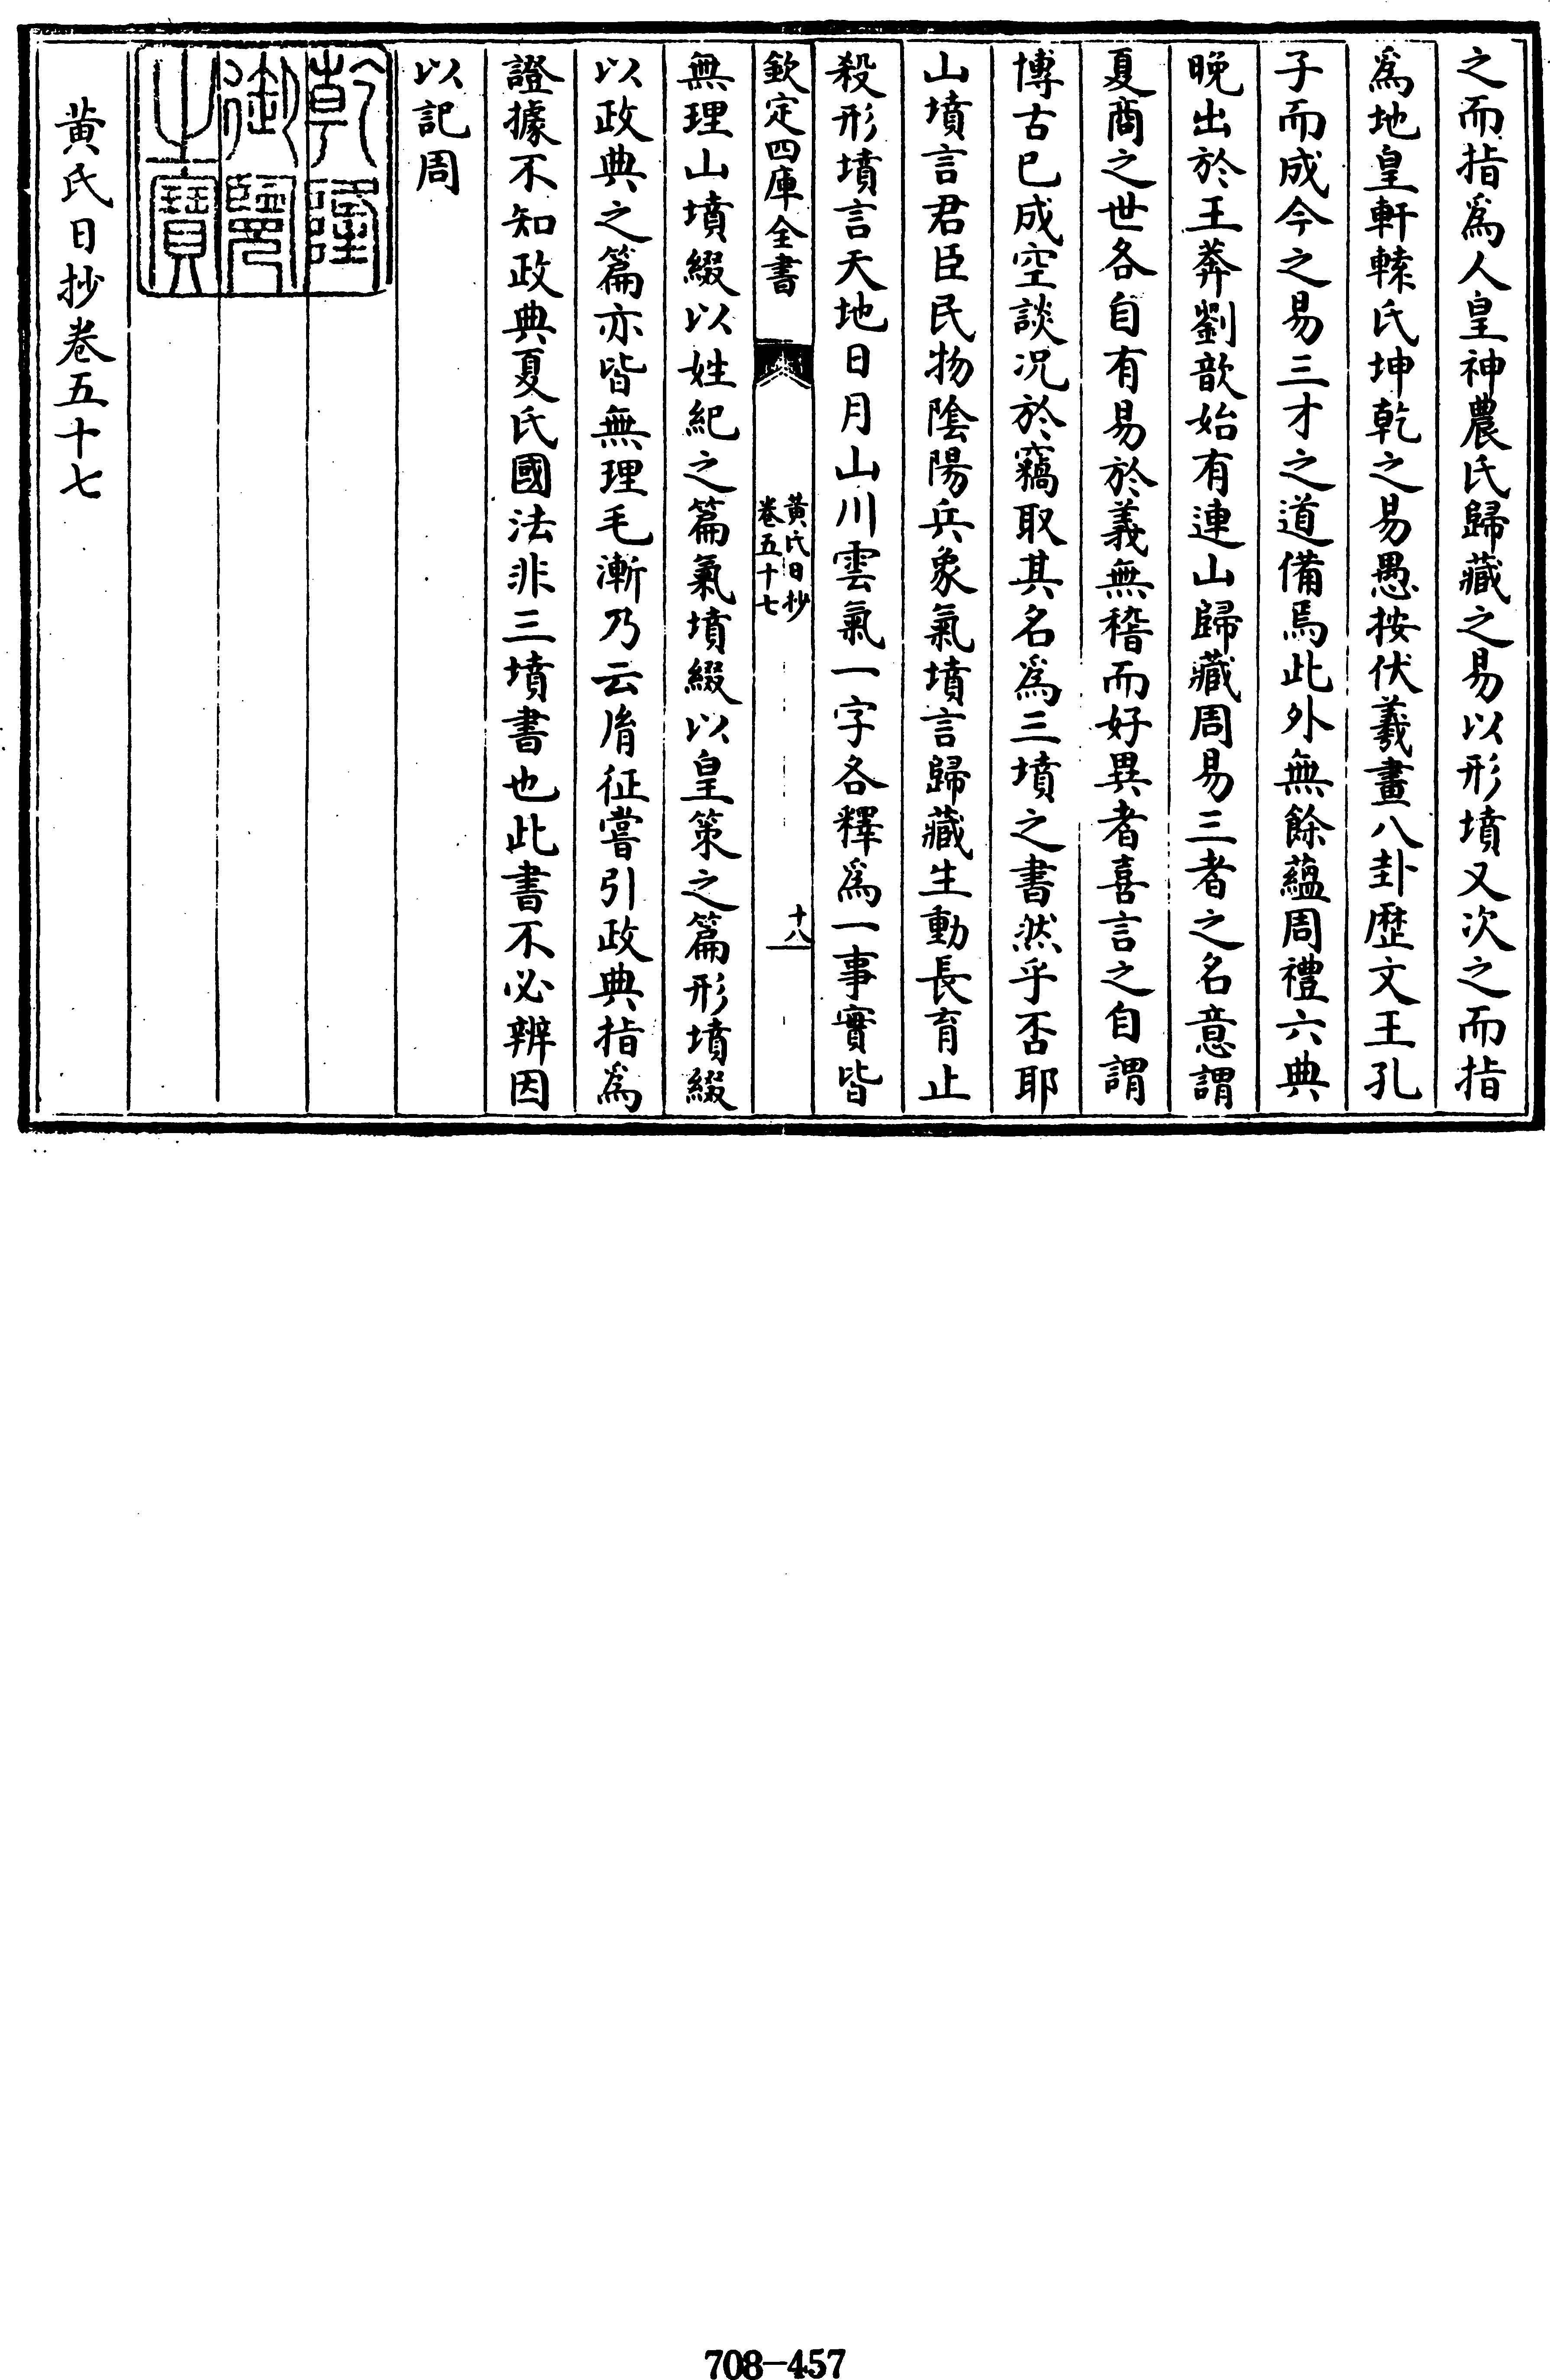 之而指爲人皇神農氏歸藏之易以形墳又次之而指
爲地皇軒轅氏坤乾之易愚按伏羲畫八卦歷文王孔
子而成今之易三才之道備焉此外無餘蘊周禮六典
晚出於王莽劉歆始有連山歸藏周易三者之名意謂
夏商之世各自有易於義無稽而好異者喜言之自謂
博古已成空談況於竊取其名爲三墳之書然乎否耶
山墳言君臣民物陰陽兵象氣墳言歸藏生動長育止
殺形墳言天地日月山川雲氣一字各釋爲一事實皆
欽定四庫全書
黃氏日抄
卷五十七
十八
無理山墳綴以姓紀之篇氣墳綴以皇策之篇形墳綴
以政典之篇亦皆無理毛漸乃云胤征嘗引政典指爲
證據不知政典夏氏國法非三墳書也此書不必辨因
以記周
乾隆
御覽
之寶
黃氏日抄卷五十七
708-457